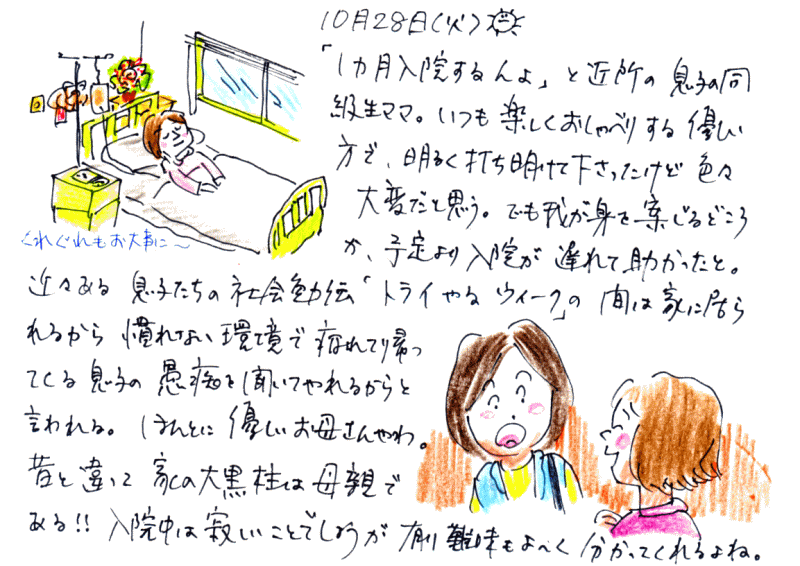 10月28日(火)
「1カ月入院するんよ」と近所の息子の同
級生ママ。いつも楽しくおしゃべりする優しい
方で、明るく打ち明けて下さったけど色々
大変だと思う。でも我が身を案じるどころ
か、予定より入院が遅れて助かったと。
くれぐれもお大事に〜
近々ある息子たちの社会勉伝「トライやるウィーク」の間は家に居ら
れるから慣れない環境で疲れて帰っ
てくる息子の愚痴を聞いてやれるからと
言われる。ほんとに優しいお母さんやわ。
昔と違って家の大黒柱は母親で
ある!!入院中は寂しいことでしょうが有難味もよーく分かってくれるよね。